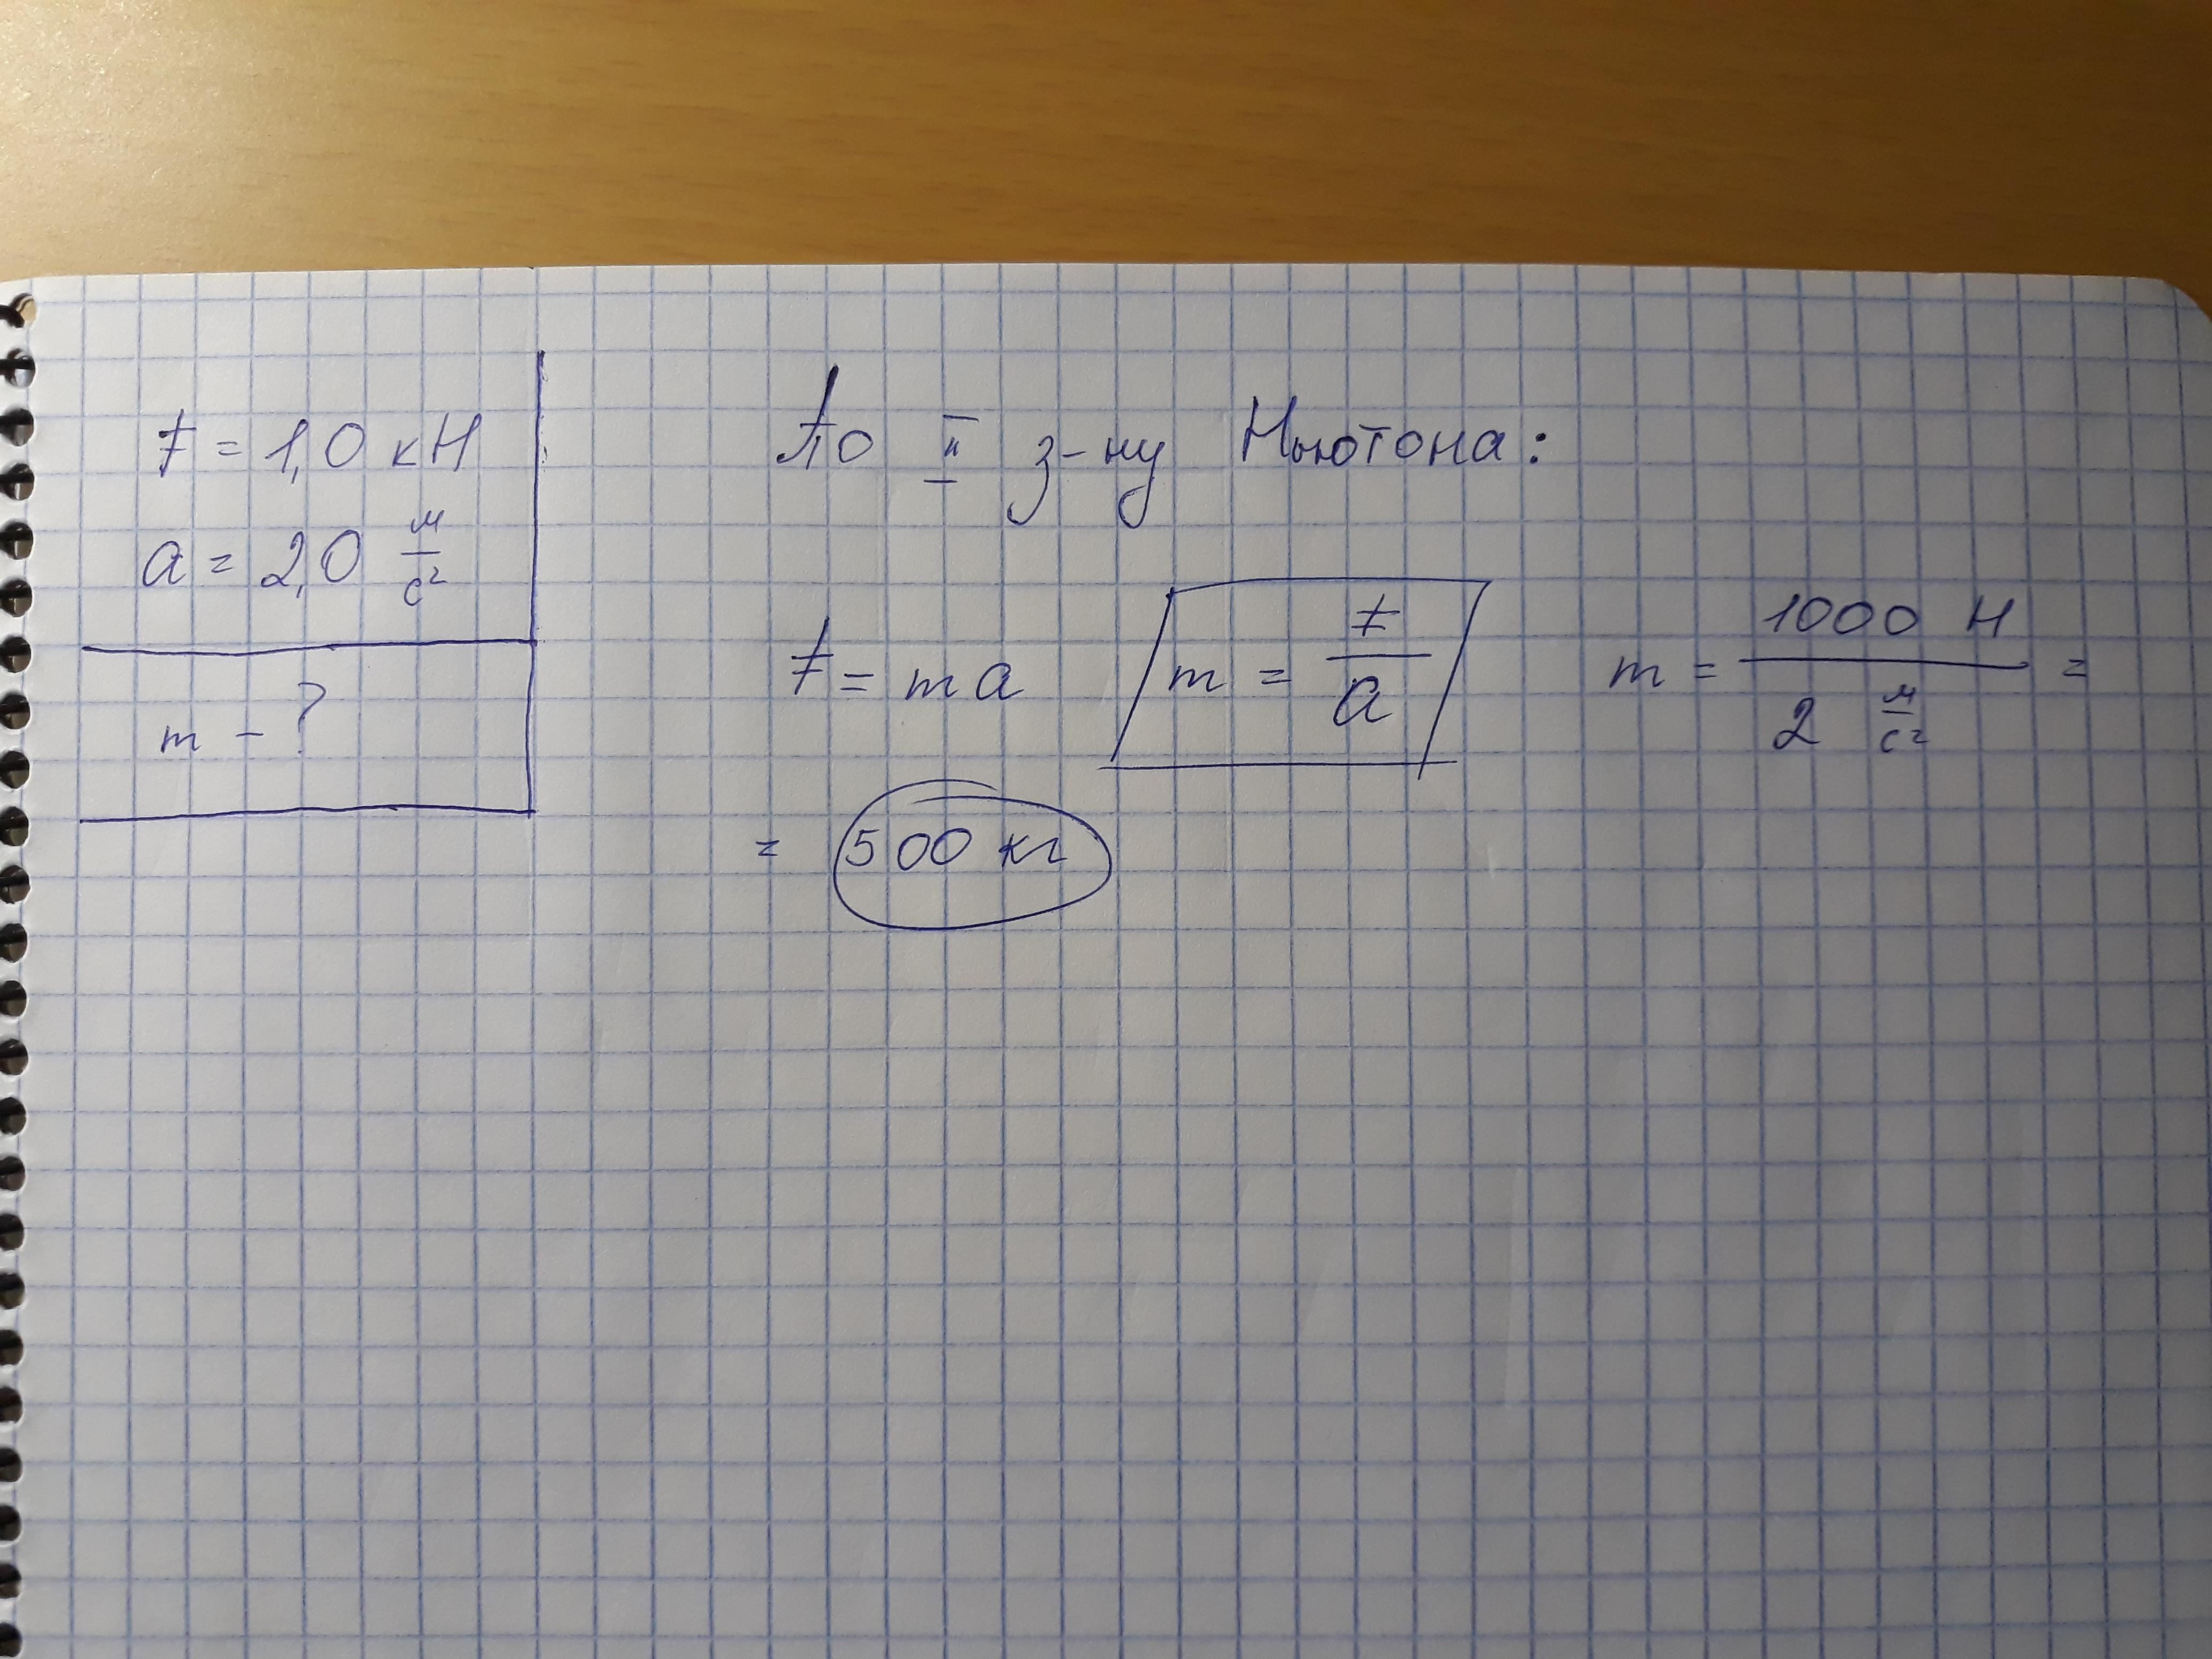 F = 1,0 кН
a = 2,0 м/с²
m - ?
По II з-ну Ньютона:
F = ma   m = F/a   m = 1000 Н / 2 м/с² =
= 500 кг